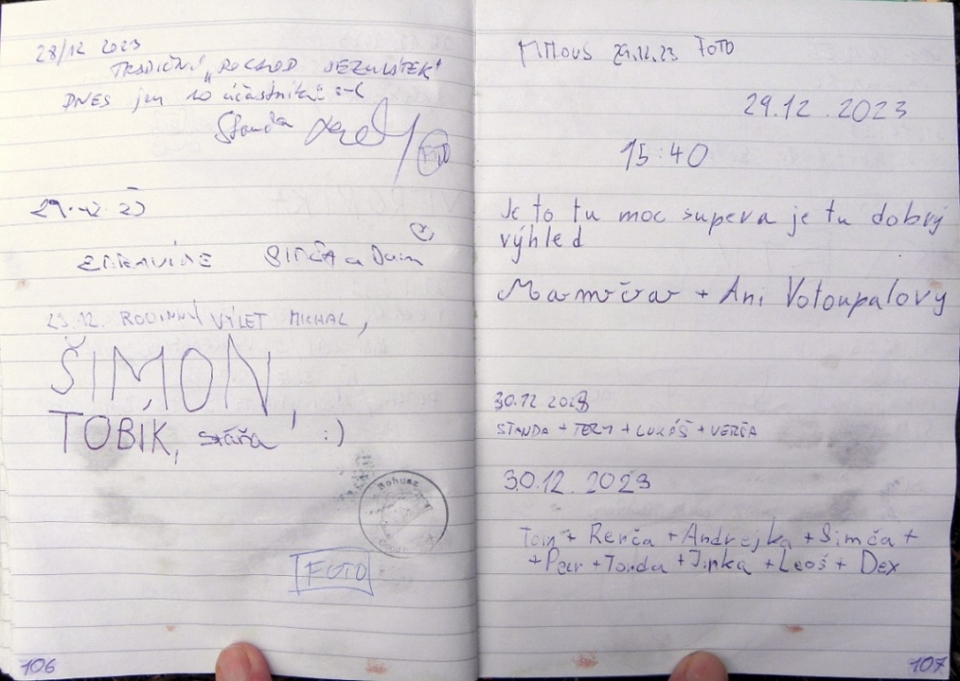 28/12 2023
TRADIČNÍ „POCHOD JEZULÁTEK"
DNES jen 10 účastníků :-(
Standa
FOTO
29.12.23
ZDRAVÍME SIMČA a Dan
29.12. RODINNÝ VÝLET MICHAL,
ŠIMON,
TOBIK, Stáňa :)
Bohusz
FOTO
106
MMOUS 29.12.23 FOTO
29.12.2023
15:40
Je to tu moc supeva je tu dobrý
výhled
Mamčva + Ani Votoupalovy
30.12 2023
STANDA + TERY + LUKÁŠ + VERČA
30.12.2023
Tom + Renča + Andrejka + Simča +
+ Petr + Tonda + Jirka + Leoš + Dex
107